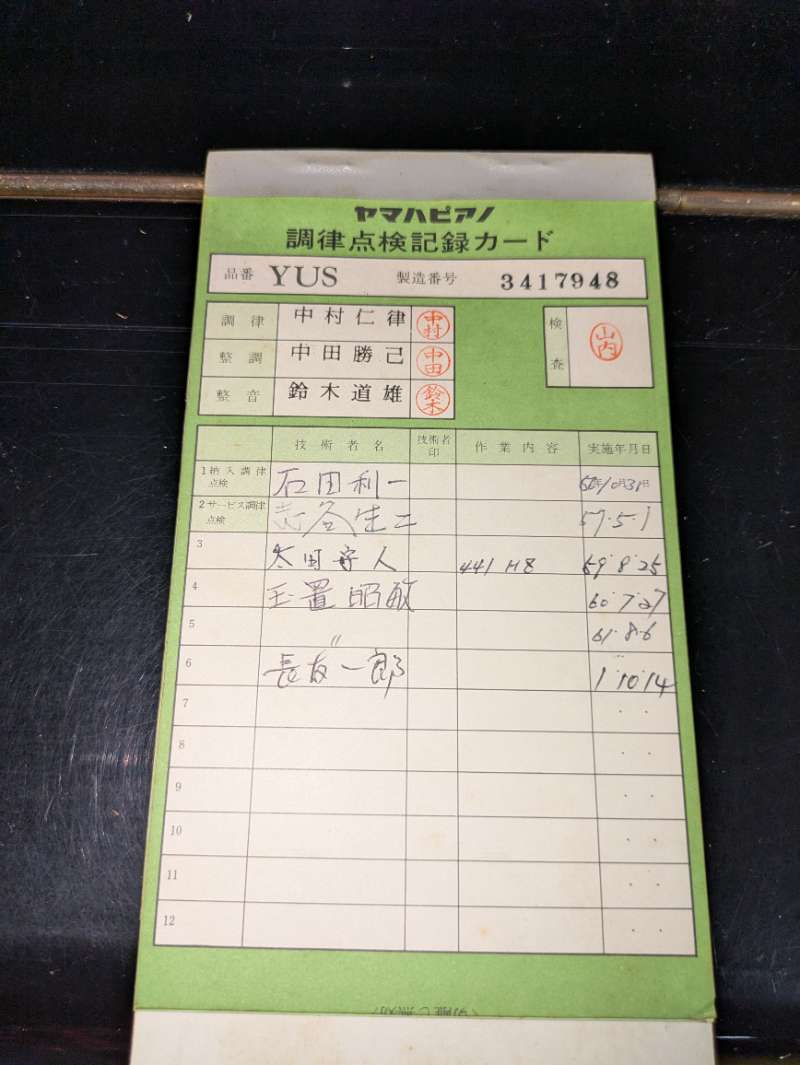 ヤマハピアノ
調律点検記録カード
品番 YUS 製造番号 3417948
調律 中村仁律 中村
整調 中田勝己 中田
整音 鈴木道雄 鈴木
検査 山内
技術者名 技術者印 作業内容 実施年月日
1 納入調律点検 石田利一 年10月31日
2 サービス調律点検 谷生二 57.5.1
3 太田守人 441 HZ 59.8.25
4 玉置昭敏 60.7.27
5 〃 61.8.6
6 長友一郎 1.10.14
7
8
9
10
11
12